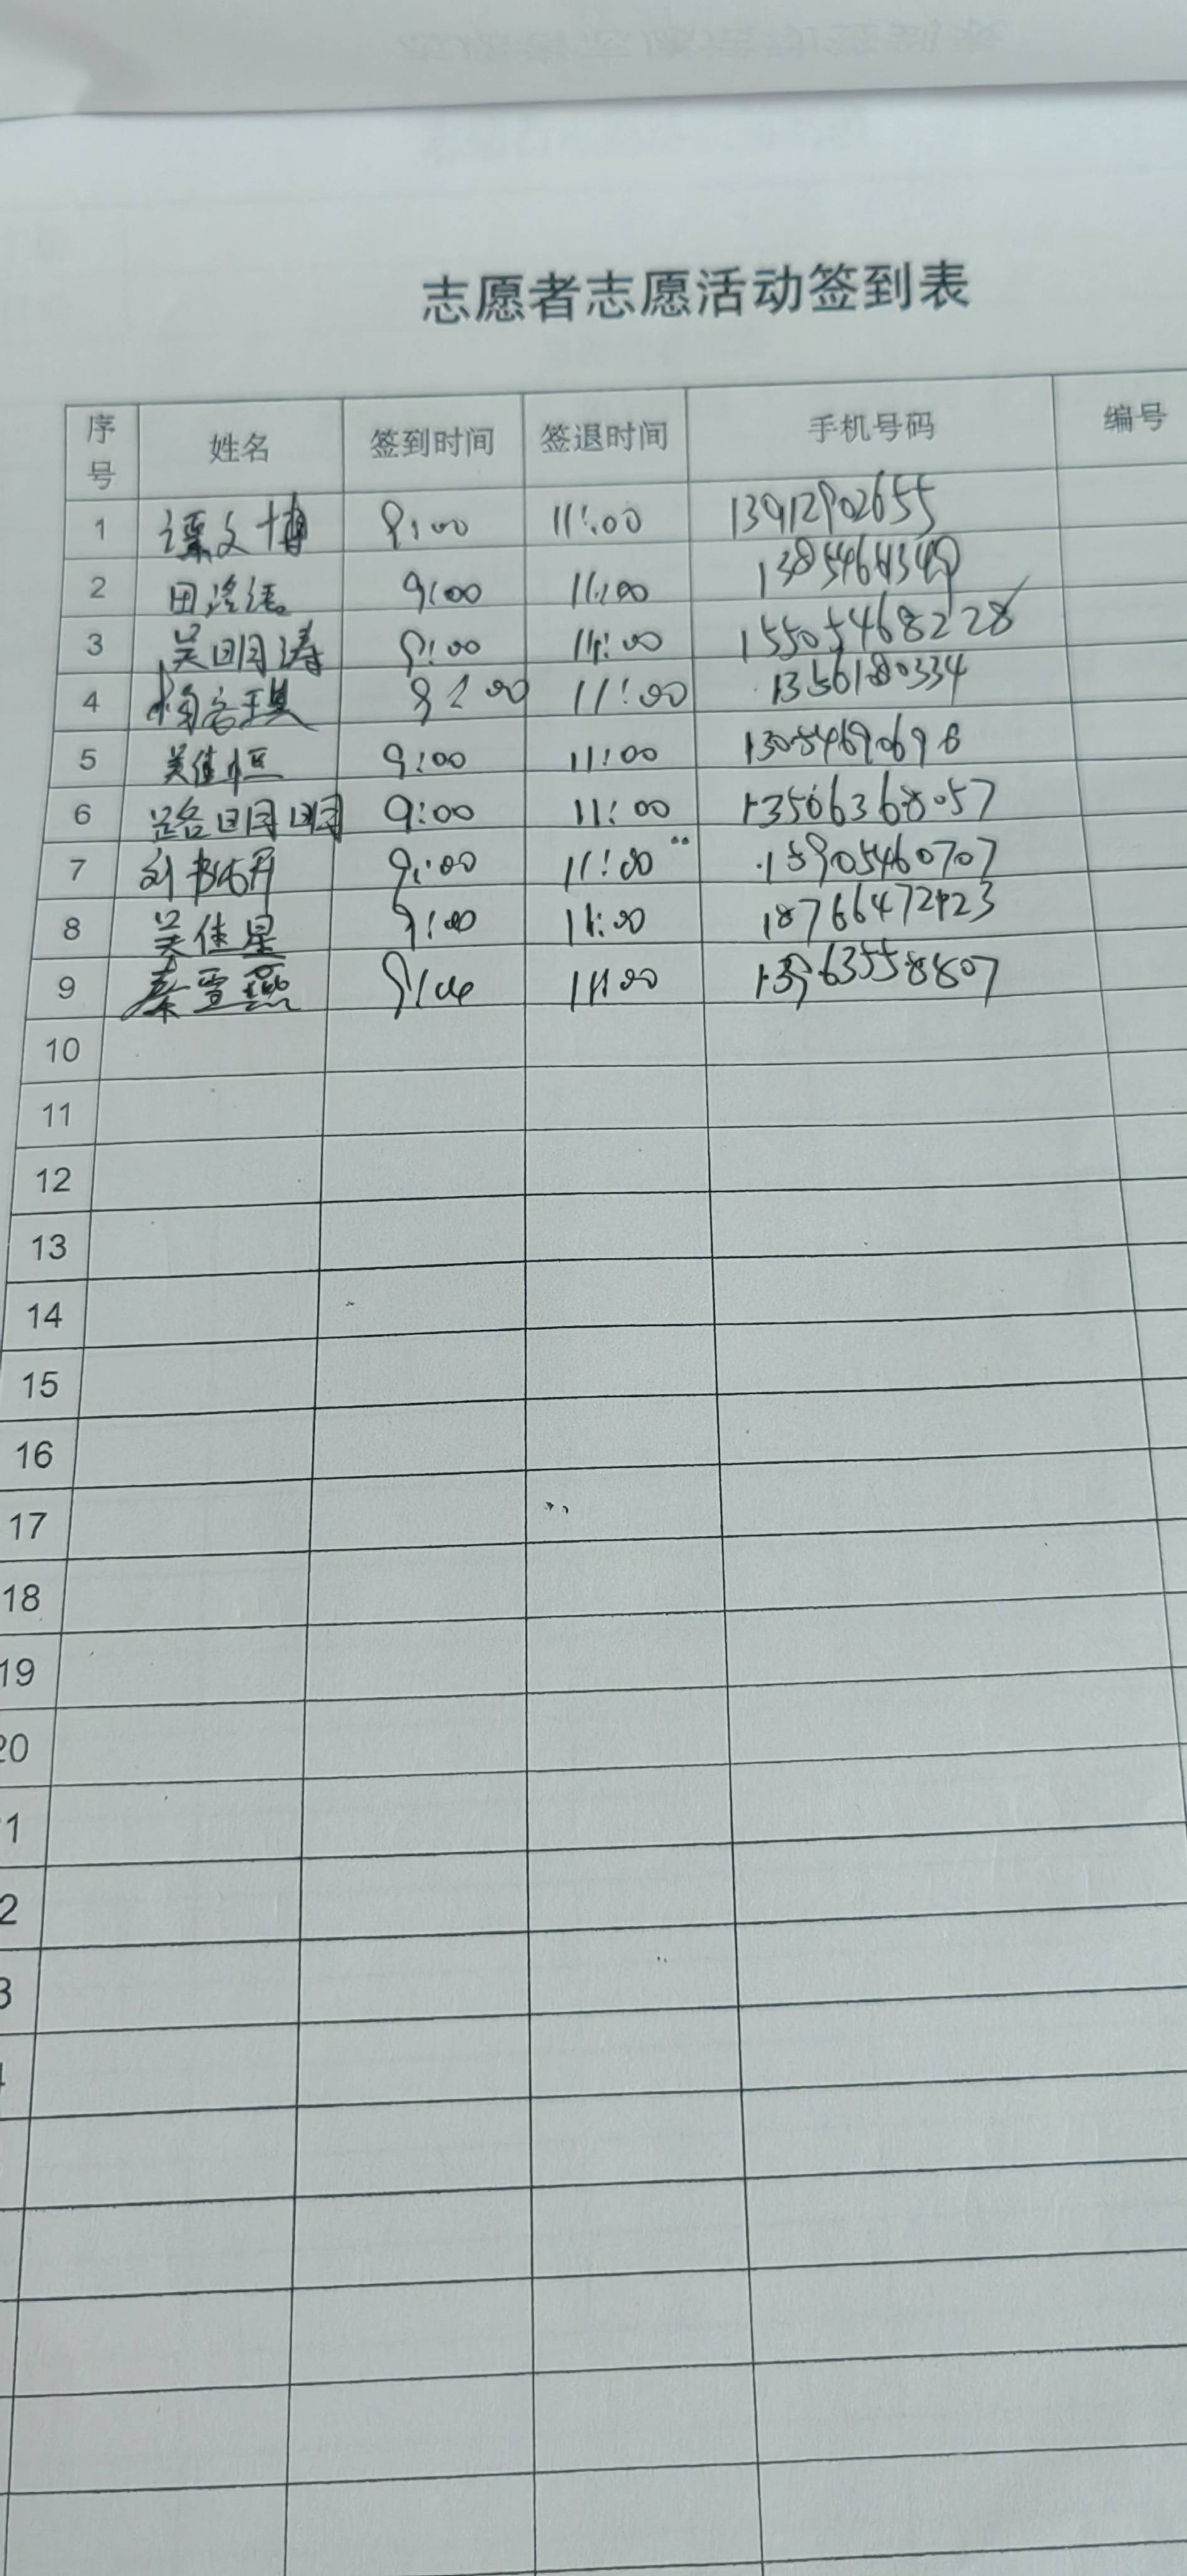 志愿者志愿活动签到表
序号 姓名 签到时间 签退时间 手机号码 编号
1 谭文博 9:00 11:00 13912902655
2 田 9:00 11:00
3 吴明涛 9:00 11:00 15505468228
4 9:00 11:00 1356180334
5 吴佳恒 9:00 11:00 13054690696
6 路明明 9:00 11:00 13506368057
7 刘书 9:00 11:00 15905460707
8 吴佳星 9:00 11:00 18766472923
9 秦雪燕 11:00 13963558807
10
11
12
13
14
15
16
17
18
19
20
1
2
3